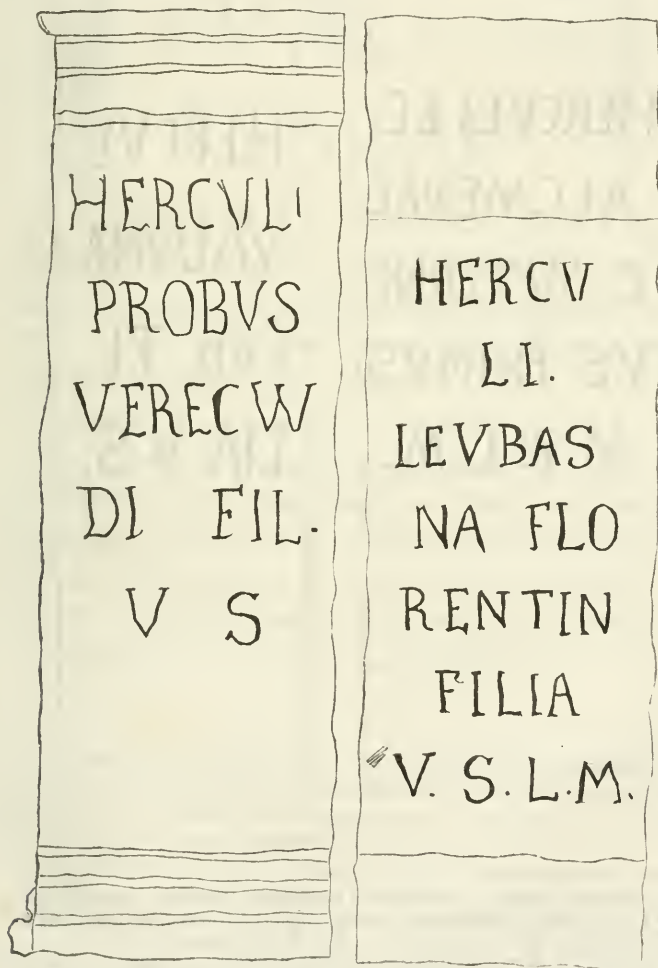 HERCVLI
PROBVS
VERECVV
DI FIL.
V S
HERCV
LI.
LEVBAS
NA FLO
RENTIN
FILIA
V. S. L. M.